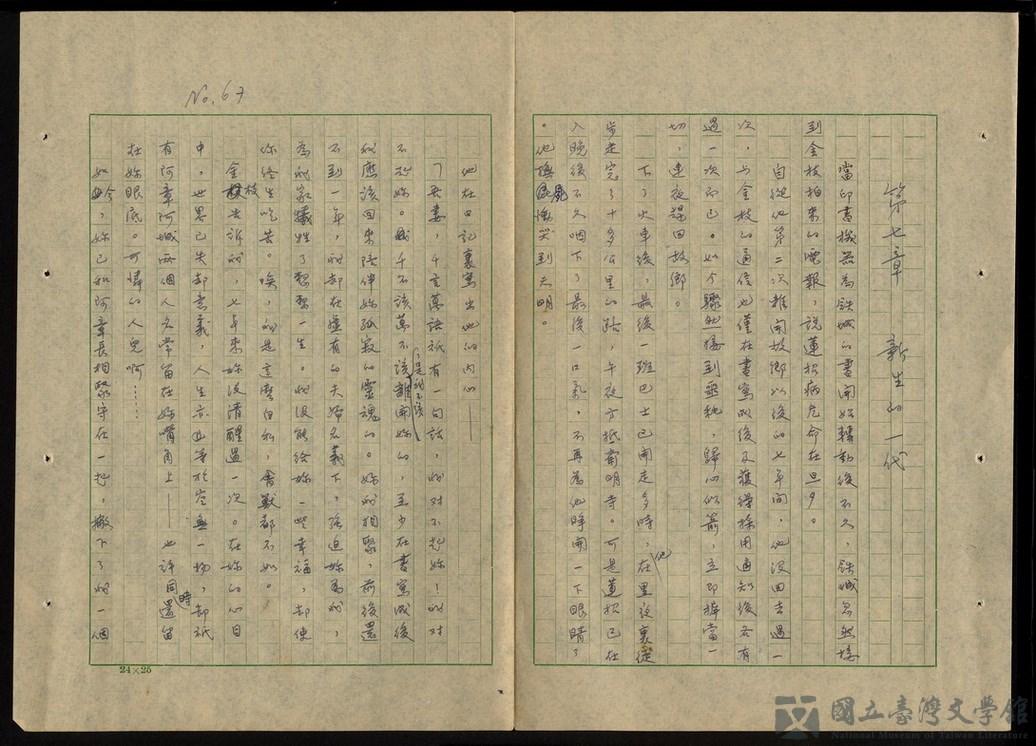 第七章　新生的一代
當印書機器為鉄城的書開始轉動後不久，鉄城忽然接
到金枝拍來的電報，說蓮招病危命在旦夕。
自從他第二次離開故鄉以後的七年間，他沒回去過一
次，与金枝的通信也僅在書寫成後及獲得採用通知後各有
過一次而已。如今驟然接到噩耗，歸心似箭，立即摒當一
切，連夜趕回故鄉。
下了火車後，最後一班巴士已開走多時，他在黑夜裏徒
步走完了十多公里的路，午夜方抵南明寺。可是蓮招已在
入晚後不久咽下了最後一口氣，不再為他睜開一下眼睛了
。他撫屍慟哭到天明。
No. 67
他在日記裏寫出他的內心——
「吾妻，千言萬語祇有一句話，我对不起妳！我对
不起妳。我千不該萬不該，是我不該離開妳的，至少在書寫成後
我應該回來陪伴妳孤寂的靈魂的。妳我相聚，前後還
不到一年，我却在虛有的夫婦名義下，強迫妳為我，
為我家犧牲了整整一生。我沒能給妳一些幸福，却使
你終生吃苦。唉，我是這麼自私，禽獸都不如。
金枝告訴我，七年來妳沒清醒過一次。在妳的心目
中，世界已失却意義，人生亦且等於空無一物，却祇
有阿章阿城兩個人名常留在妳嘴角上——也許同時還留
在妳眼底。可憐的人兒啊……
如今，妳已和阿章長相聚守在一起，撇下了我一個
24×25
國立臺灣文學館
National Museum of Taiwan Literature